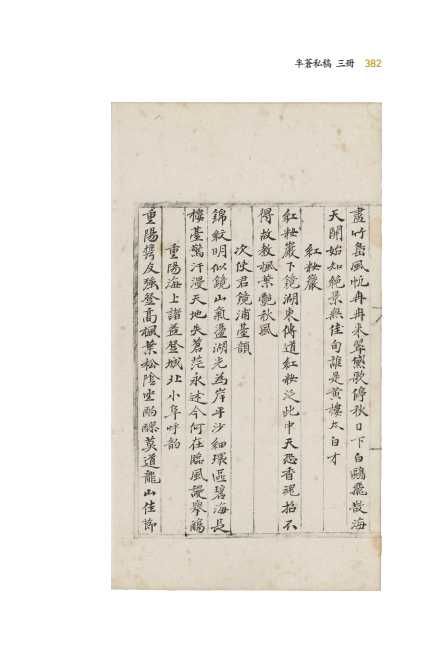 半蒼私稿 三冊 382
盡竹崙風帆冉冉來翠黛歌停秋日下白鷗飛散海
天開始知絶景無佳句誰是黃樓太白才
紅粧巖
紅粧巖下鏡湖東傳道紅粧泛此中天恐香魂招不
得故敎楓葉艶秋風
次伏君鏡浦臺韻
錦紋明似鏡山氣盪湖光爲岸平沙細環區碧海長
樓臺驚汗漫天地失茗茫永述今何在臨風謾擧觴
重陽海上諸益登城北小阜呼韵
重陽携友强登高楓葉松陰坐酌醪莫道龍山佳節